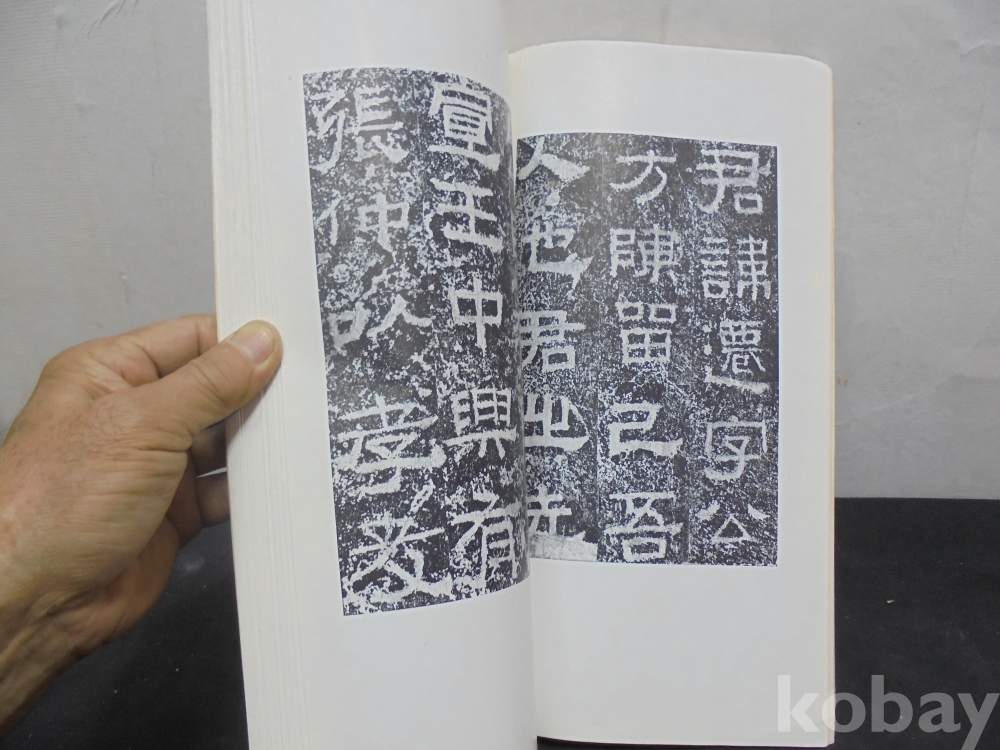 君諱遷字公
方陳留己吾
人也君之先
宣王中興有
張仲以孝友
kobay